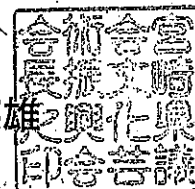 雄
宮崎県議
会文化芸
術振興会
会長之印